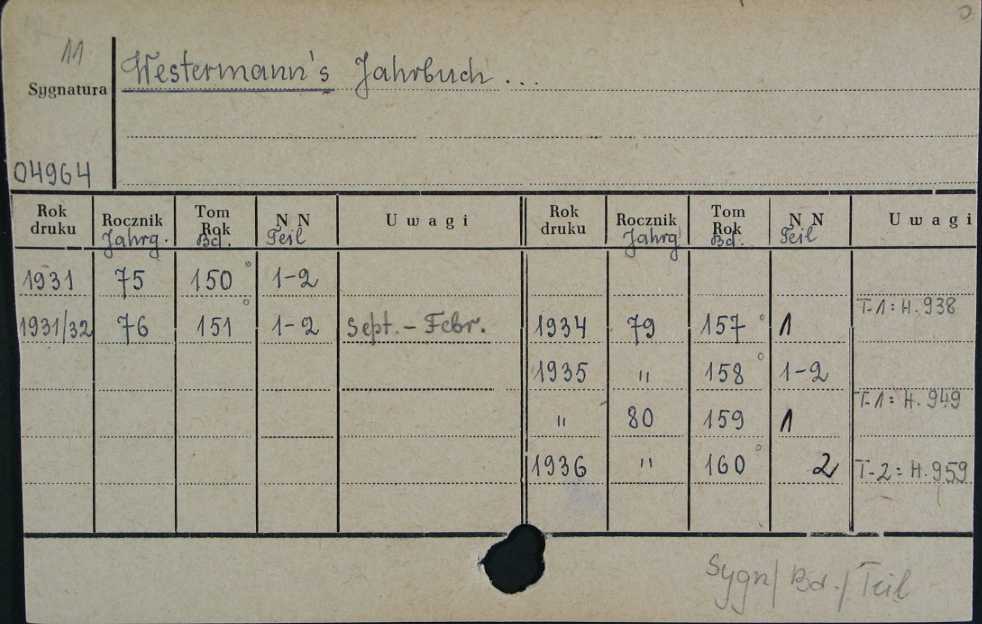 11
Westermann's Jahrbuch ...
Sygnatura
04964
Rok druku Rocznik Jahrg. Tom Rok Bd. N N Teil Uwagi Rok druku Rocznik Jahrg Tom Rok Bd. N N Teil Uwagi
1931 75 150° 1-2
T-1: H. 938
1931/32 76 151° 1-2 Sept. - Febr. 1934 79 157° 1
1935 " 158° 1-2
T-1: H. 949
" 80 159 1
1936 " 160° 2 T-2: H. 959
Sygn/ Bd./ Teil